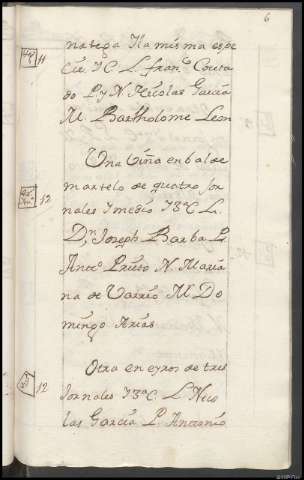 6
natega Y la misma espe
cie YC. L. fran.co Conra
do P. y N. Nicolas Garcia
M. Bartholome Leon
11
Una Viña en bal de
martelo de quatro jor
nales y medio Y 3.ª C. L.
12
D.n Joseph Barba P.
Ant.o Prieto N. Maria
na de Varrio M. Do
mingo Arias
Otra en eyros de tres
12
Jornales Y 3.ª C. L. Nico
las Garcia P. Antonio